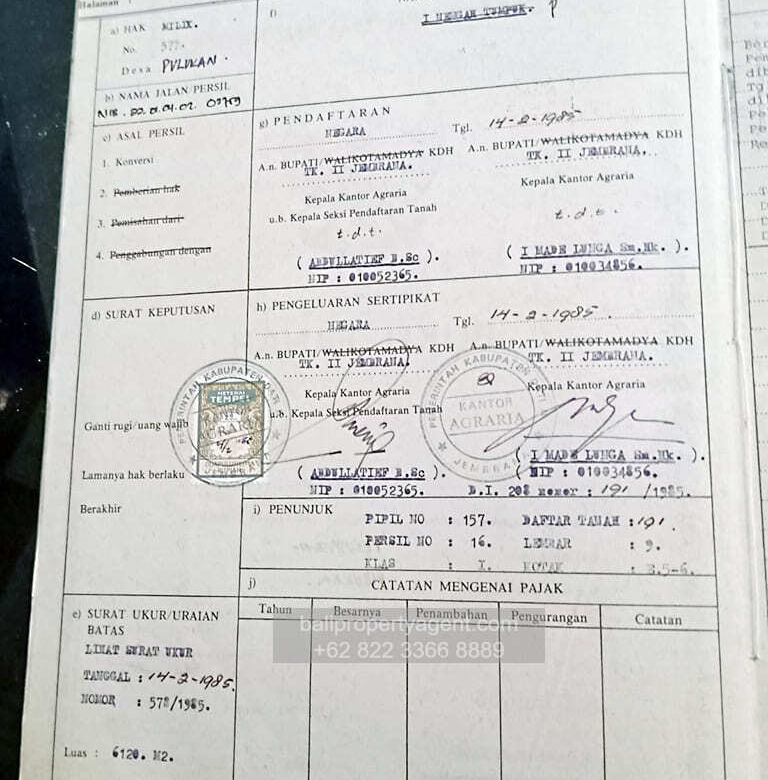 Halaman
a) HAK MILIK.
No. 577.
Desa PULUKAN.
b) NAMA JALAN/PERSIL
c) ASAL PERSIL
1. Konversi
2. Pemberian hak
3. Pemisahan dari
4. Penggabungan dengan
d) SURAT KEPUTUSAN
Ganti rugi/uang wajib
Lamanya hak berlaku
Berakhir
e) SURAT UKUR/URAIAN
BATAS
LIHAT SURAT UKUR
TANGGAL : 14-2-1985.
NOMOR : 578/1985.
Luas : 6120. M2.
f)
I NENGAH TUMPUK. P
g) PENDAFTARAN
NEGARA Tgl. 14-2-1985
A.n. BUPATI/WALIKOTAMADYA KDH A.n. BUPATI/WALIKOTAMADYA KDH
TK. II JEMBRANA. TK. II JEMBRANA.
Kepala Kantor Agraria Kepala Kantor Agraria
u.b. Kepala Seksi Pendaftaran Tanah
t.d.t. t.d.t.
( ABDULLATIEF B.Sc ). ( I MADE LUNGA Sm.Hk. ).
NIP : 010052365. NIP : 010034856.
h) PENGELUARAN SERTIPIKAT
NEGARA Tgl. 14-2-1985.
A.n. BUPATI/WALIKOTAMADYA KDH A.n. BUPATI/WALIKOTAMADYA KDH
TK. II JEMBRANA. TK. II JEMBRANA.
Kepala Kantor Agraria Kepala Kantor Agraria
u.b. Kepala Seksi Pendaftaran Tanah
METERAI
TEMPEL
KANTOR
AGRARIA
PEMERINTAH KABUPATEN
KANTOR
AGRARIA
JEMBRANA
( ABDULLATIEF B.Sc ). ( I MADE LUNGA Sm.Hk. ).
NIP : 010052365. NIP : 010034856.
D.I. 208 nomor : 191 /1985.
i) PENUNJUK
PIPIL NO : 157. DAFTAR TANAH : 191.
PERSIL NO : 16. LEMBAR : 9.
KLAS : I. KOTAK : E.5-6.
j) CATATAN MENGENAI PAJAK
Tahun Besarnya Penambahan Pengurangan Catatan
balipropertyagent.com
+62 822 3366 8889